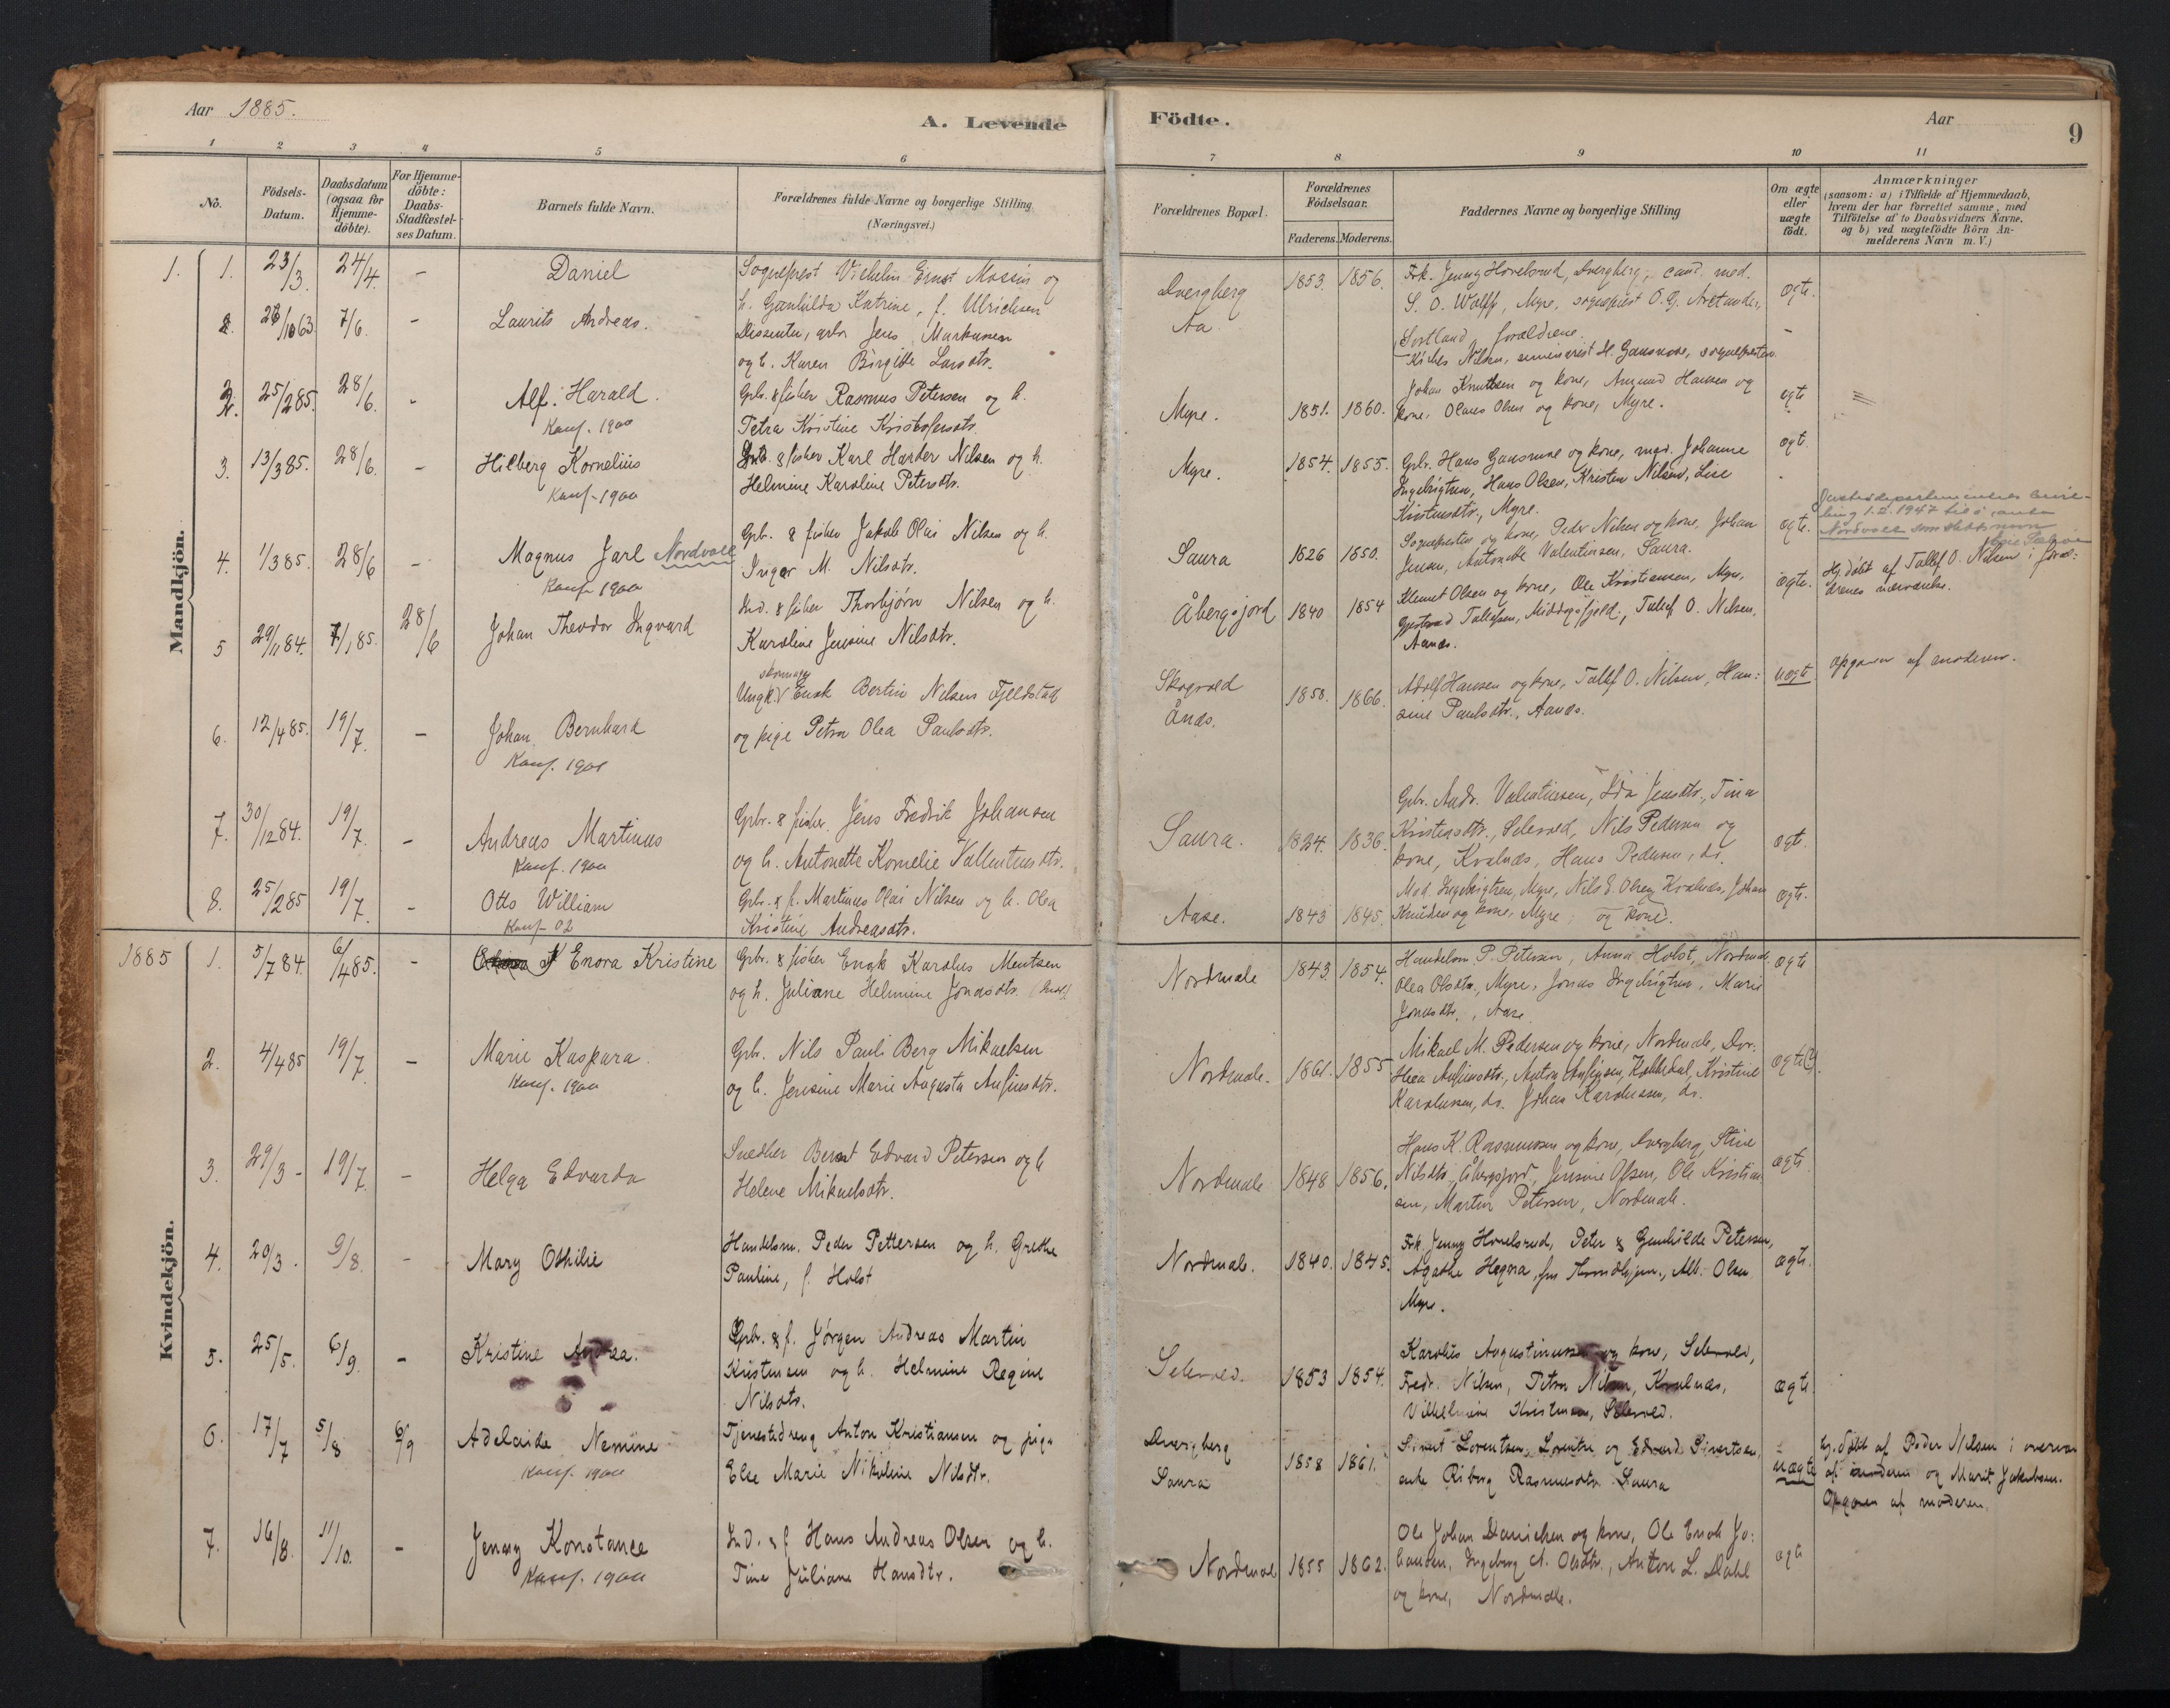 Aar 1885.
A. Levende
Födte.
Aar
9
1 2 3 4 5 6 7 8 9 10 11
No.
Födsels-Datum.
Daabsdatum (ogsaa for Hjemme-döbte).
For Hjemme-döbte: Daabs-Stadfæstel-ses Datum.
Barnets fulde Navn.
Forældrenes fulde Navne og borgerlige Stilling
(Næringsvei.)
Forældrenes Bopæl.
Forældrenes Födselsaar.
Faderens. Moderens.
Faddernes Navne og borgerlige Stilling
Om ægte eller uægte födt.
Anmærkninger
(saasom: a) i Tilfælde af Hjemmedaab,
hvem der har forrettet samme, med
Tilföielse af to Daabsvidners Navne.
og b) ved uægtefödte Börn An-
melderens Navn m. V.)
Mandkjön.
1. 1. 23/3. 24/4. - Daniel
Sognepræst Vilhelm Ernst Massin og
h. Gunhilda Katrine, f. Ulrichsen
Dvergberg 1853. 1856.
Frk. Jenny Hovelsrud, Dvergberg, cand. med.
S. O. Wolff, Myre, sognepræst O. G.
Sortland forældrene.
ægte.
2. 7/6. - Laurits Andreas.
Dissenter, arb. Jens Markussen
og h. Karen Birgitte Larsdtr.
Aa
Nilsen, seminarist H. Gausmoe, sognepresten
2. 25/2 85. 28/6. - Alf. Harald.
Konf. 1900
Gbr. & fisker Rasmus Petersen og h.
Petra Kristine Kristofersdtr.
Myre. 1851. 1860.
Johan Knutsen og kone, Amund Hansen og
kone, Olaus Olsen og kone, Myre.
egte
3. 13/3 85. 28/6. - Hilberg Kornelius
Konf. 1900
Ind. & fisker Karl Harder Nilsen og h.
Helmine Karoline Petersdtr.
Myre. 1854. 1855.
Gbr. Hans Gausmoe og kone, mad. Johanne
Ingebrigtsen, Hans Olsen, Kristen Nilsen, Lise
Kristensdtr., Myre.
ægt.
4. 1/3 85. 28/6 - Magnus Jarl Nordvoll
Konf. 1900
Gbr. & fisker Jakob Olai Nilsen og h.
Inger M. Nilsdtr.
Saura 1826 1850.
Sognepresten og kone, Peder Nilsen og kone, Johan
Jensen, Antonette Valentinsen, Saura.
ægte.
Justisdepartementets bevil-
ling 1.2.1947 til å anta
Nordvoll som slektsnavn
5 29/11 84. 7/1 85. 28/6 Johan Theodor Ingvard
Ind. & fisker Thorbjørn Nilsen og h.
Karoline Jensine Nilsdtr.
Åbergsjord 1840 1854
Klemet Olsen og kone, Ole Kristiansen, Myre,
Tallefsen, Middagsfjeld, Tallef O. Nilsen,
Aanes.
ægte.
Hj. døbt af Tallef O. Nilsen i foræl-
drenes nærværelse.
6. 12/4 85. 19/7. - Johan Bernhard
Konf. 1901
skomager
Ungk. Enok Bertin Nilsen Fjeldstad
og pige Petra Olea Paulsdtr.
Skogvold
Ånes. 1858. 1866.
Adolf Hansen og kone, Tallef O. Nilsen, Han-
sine Paulsdtr., Aanes.
uægte
Opgaven af moderen.
7. 30/12 84. 19/7. - Andreas Martinus
Konf. 1900
Gbr. & fisker Jens Fredrik Johansen
og h. Antonette Kornelie Vallentinsdtr.
Saura. 1824. 1836.
Gbr. Andr. Valentinsen, Ida Jensdtr., Tina
Kristensdtr., Selevold, Nils Pedersen og
kone, Kvalnæs, Hans Pedersen, do.
ægte.
8. 25/2 85 19/7. - Otto William
Konf. 02
Gbr. & f. Martinus Olai Nilsen og h. Olea
Kristine Andreasdtr.
Aase. 1843 1845.
Mad. Ingebrigtsen, Myre, Nils E. Olsen, Kvalnæs, Johan
Knudsen og kone, Myre, og kone.
ægte.
Kvindekjön.
1885 1. 5/7 84. 6/4 85. - Enora Kristine
Gbr. & fisker Enok Karolus Mentsen
og h. Juliane Helmine Jonasdtr.
Nordmale 1843. 1854.
Handelsm. P. Petersen, Anna Holst, Nordmale
Olea Olsdtr., Myre, Jonas Ingebrigtsen, Marie
Jonasdtr., Aase
ægte
2. 4/4 85 19/7. - Marie Kaspara.
Konf. 1900
Gbr. Nils Pauli Berg Mikaelsen
og h. Jensine Marie Augusta Anfinsdtr.
Nordmale. 1861. 1855
Mikael M. Pedersen og kone, Nordmale, Dor-
thea Anfinsdtr., Anton Anfinsen, Kobbedal, Kristine
Karolussen, do. Johan Karolussen, do.
ægte(?).
3. 29/3 - 19/7. - Helga Edvarda
Snedker Bernt Edvard Petersen og h
Helene Mikaelsdtr.
Nordmale 1848 1856.
Hans K. Rasmussen og kone, Dvergberg, Stine
Nilsdtr., Åbergsjord, Jensine Olsen, Ole Kristian-
sen, Martin Petersen, Nordmale.
ægte.
4. 20/3. 9/8. - Mary Othilie
Handelsm. Peder Pettersen og h. Grethe
Pauline, f. Holst
Nordmale. 1840. 1845.
Frk. Jenny Hovelsrud, Peter & Gunhilde Petersen,
Agathe Hegna, frn Trondhjem., Alb. Olsen
Myre.
ægte.
5. 25/5. 6/9. - Kristine Andrea.
Gbr. & f. Jørgen Andreas Martin
Kristensen og h. Helmine Regine
Nilsdtr.
Selevold. 1853 1854.
Karolus Augustinussen og kone, Selevold,
Fredr. Nilsen, Petra Nilsen, Kvalnæs,
Vilhelmine Kristensen, Selevold.
ægte
6. 17/7 5/8 6/9 Adelaide Nemine
Konf. 1900
Tjenestedreng Anton Kristiansen og pige
Else Marie Nikoline Nilsdtr.
Dvergberg
Saura 1858 1861.
Sivert Lorentsen, Lorentse og Edvard Sivertsen,
enke Riborg Rasmusdtr. Saura
uægte
hj. døbt af Peder Nilsen i overvær
af moderen og Marit Jakobsen.
Opgaven af moderen.
7. 16/8. 11/10. - Jenny Konstance
Konf. 1900
Ind. & f Hans Andreas Olsen og h.
Tine Juliane Hansdtr.
Nordmale 1855 1862.
Ole Johan Danielsen og kone, Ole Enok Jo-
hansen, Ingeborg A. Olsdtr., Anton L. Dahl
og kone, Nordmale.
ægte